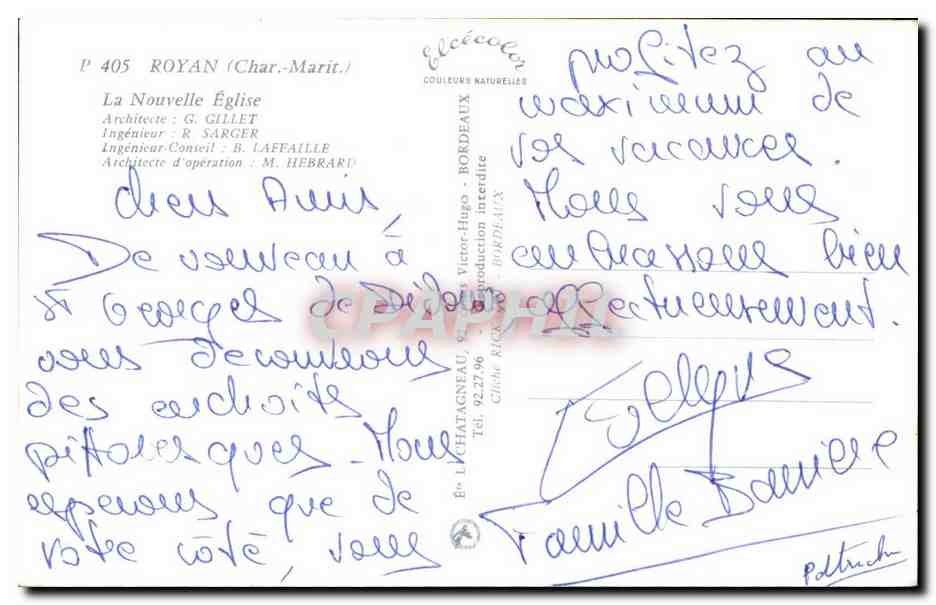 P 405 ROYAN (Char.-Marit.)
La Nouvelle Église
Architecte : G. GILLET
Ingénieur : R. SARGER
Ingénieur-Conseil : B. LAFFAILLE
Architecte d'opération : M. HEBRARD
Chers Amis,
De nouveau à
St Georges de Didonne
nous découvrons
des endroits
pittoresques. Nous
espérons que de
votre côté, vous
Elcécolor
COULEURS NATURELLES
Éts L. CHATAGNEAU, Victor-Hugo - BORDEAUX
Tél. 92.27.96 - production interdite
Cliché RICK BORDEAUX
CPAPHIL
profitez au
maximum de
vos vacances.
Nous vous
embrassons bien
affectueusement.
Famille Barrière